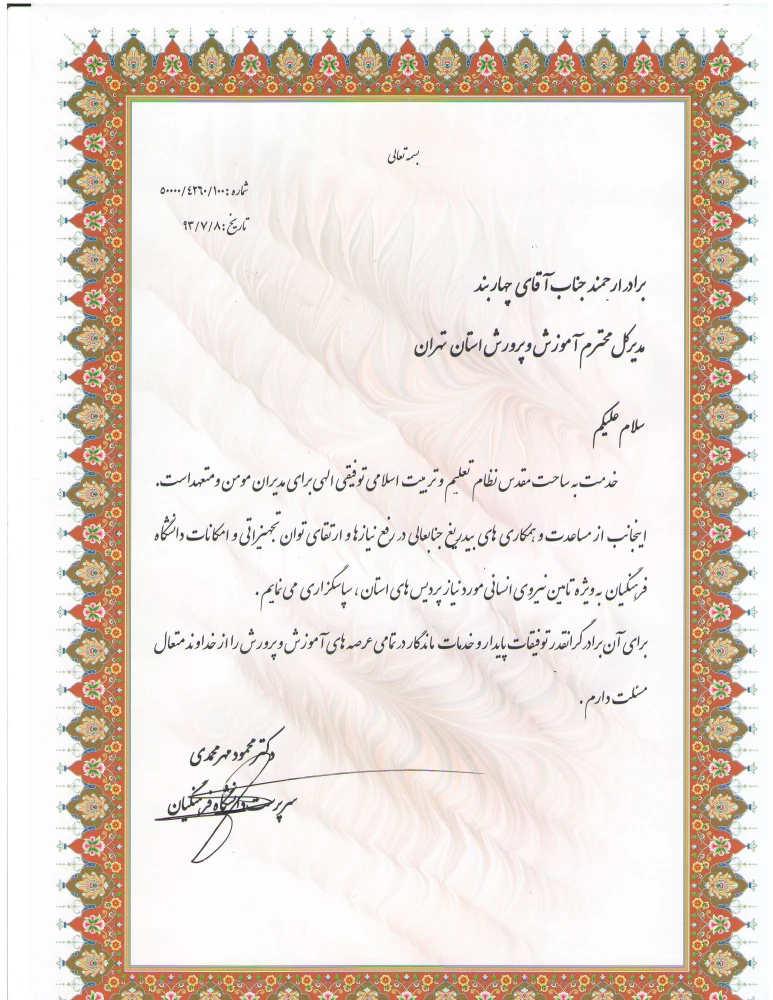 بسمه تعالی
شماره : ۵۰۰۰۰/٤٢٦٠/۱۰۰
تاریخ : ۹۳/۷/۸
برادر ارجمند جناب آقای چهاربند
مدیرکل محترم آموزش و پرورش استان تهران
سلام علیکم
خدمت به ساحت مقدس نظام تعلیم و تربیت اسلامی توفیقی الهی برای مدیران مومن و متعهد است.
اینجانب از مساعدت و همکاری های بیدریغ جنابعالی در رفع نیازها و ارتقای توان تجهیزاتی و امکانات دانشگاه
فرهنگیان به ویژه تامین نیروی انسانی مورد نیاز پردیس های استان ، سپاسگزاری می نمایم .
برای آن برادر گرانقدر توفیقات پایدار و خدمات ماندگار در تمامی عرصه های آموزش و پرورش را از خداوند متعال
مسئلت دارم .
دکتر محمود مهرمحمدی
سرپرست دانشگاه فرهنگیان